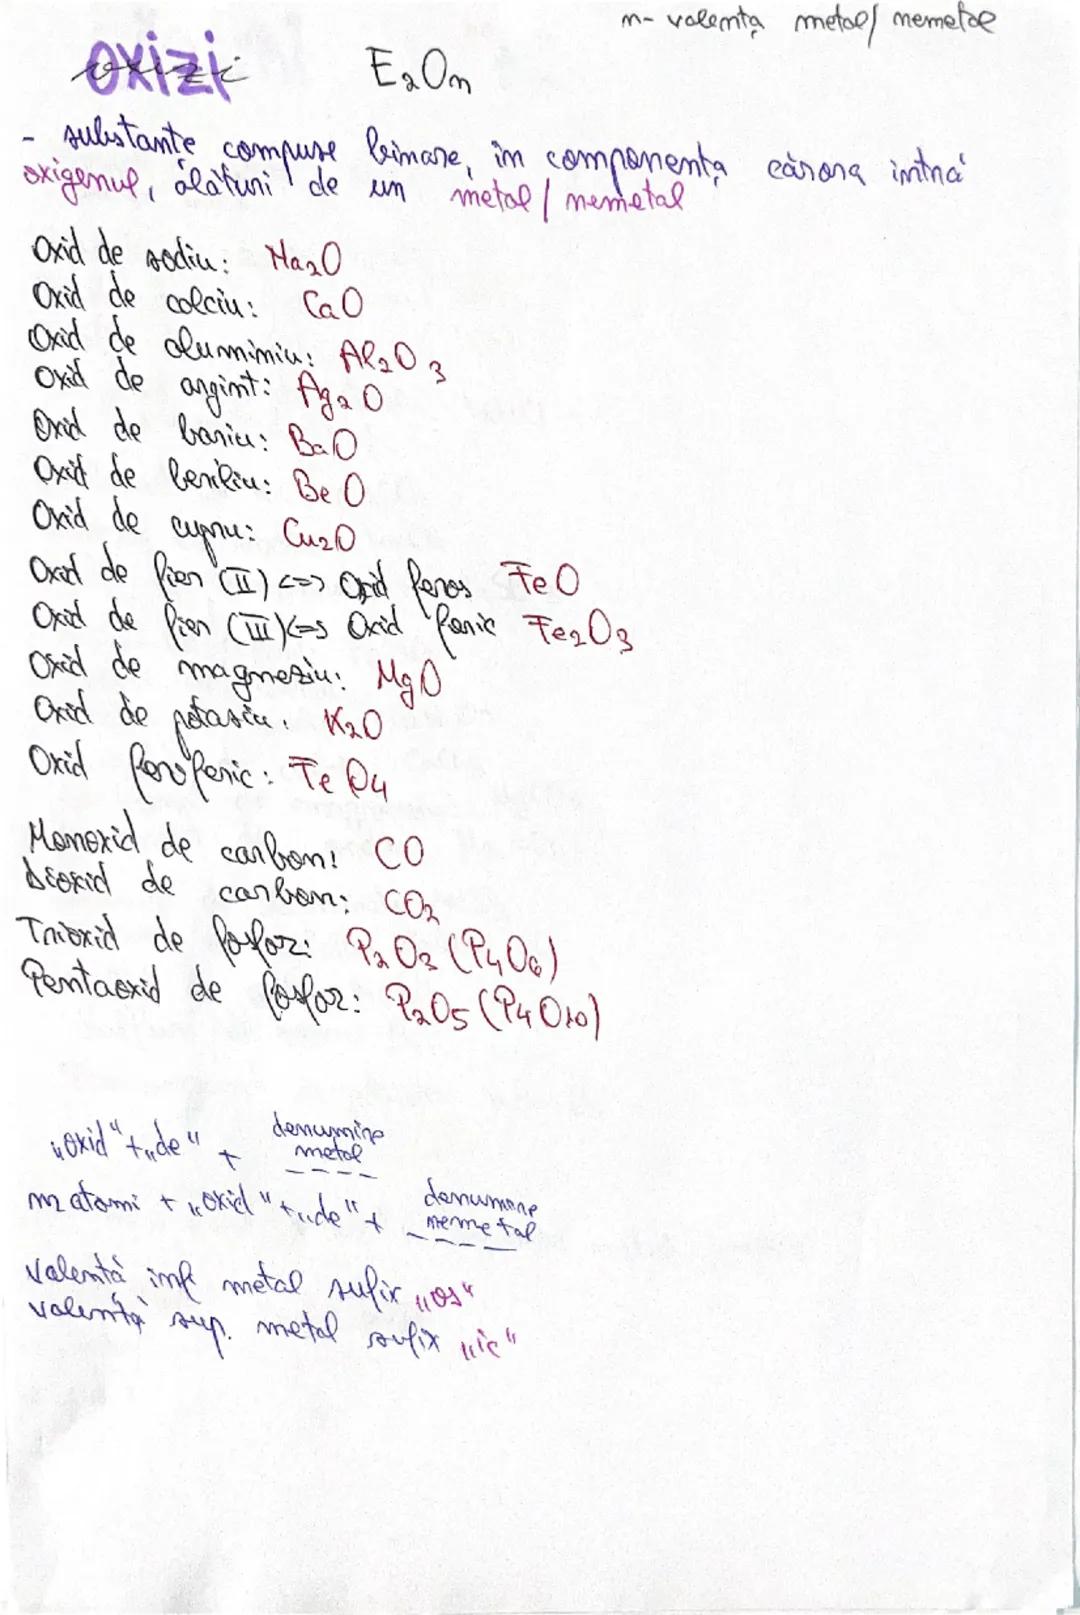 n- valență metal/ nemetal
oxizi E₂On
- substanțe compuse binare, în componența cărora intră
oxigenul, alături de un metal / nemetal
Oxid de sodiu: Na₂O
Oxid de calciu: CaO
Oxid de aluminiu: Al₂O₃
Oxid de argint: Ag₂O
Oxid de bariu: BaO
Oxid de beriliu: BeO
Oxid de cupru: Cu₂O
Oxid de fier (II) <=> Oxid feros FeO
Oxid de fier (III) <=> Oxid feric Fe₂O₃
Oxid de magneziu: MgO
Oxid de potasiu: K₂O
Oxid feroferic: Fe O₄
Monoxid de carbon: CO
Dioxid de carbon: CO₂
Trioxid de fosfor: P₂O₃ (P₄O₆)
Pentaoxid de fosfor: P₂O₅ (P₄O₁₀)
„oxid" + „de" + denumire metal
nr atomi + „oxid" + „de" + denumire nemetal
valență inf metal sufix „os"
valență sup. metal sufix „ic"